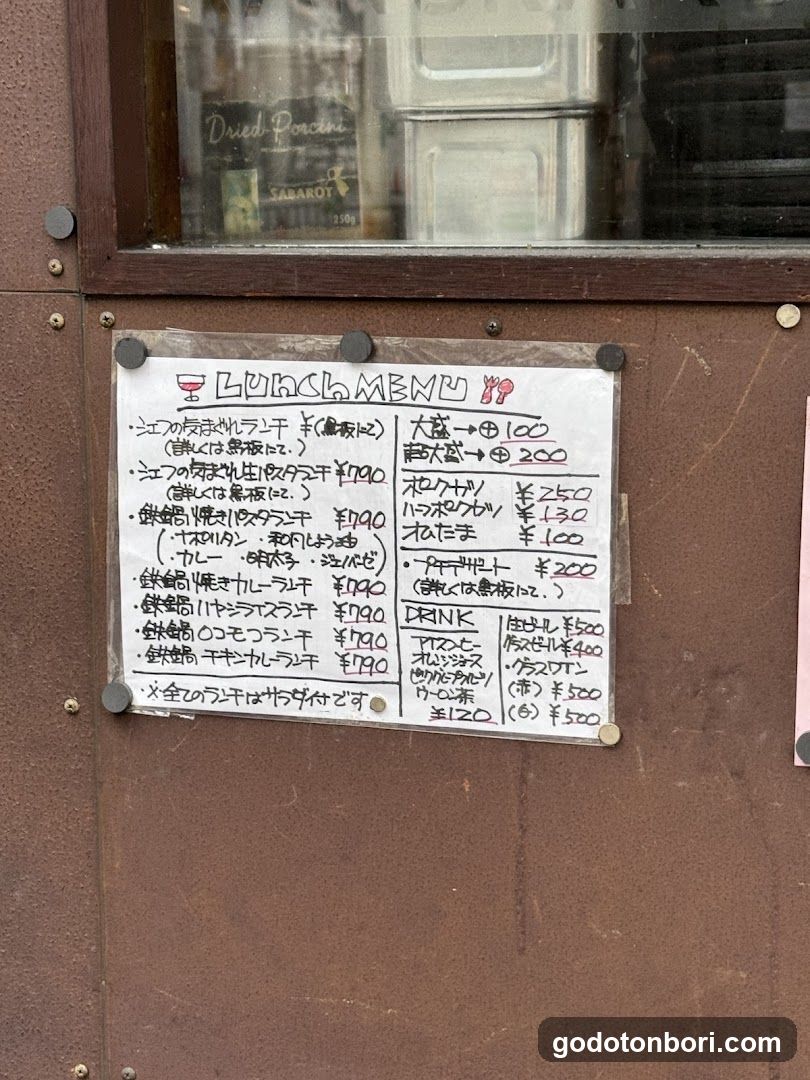 Dried Porcini
SABAROT
250g
LUNCH MENU
・シェフの気まぐれランチ ¥(黒板にて)
(詳しくは黒板にて.)
・シェフの気まぐれ生パスタランチ ¥790
(詳しくは黒板にて.)
・鉄鍋焼きパスタランチ ¥790
(・ナポリタン ・和風しょう油
・カレー ・明太子 ・ジェノバーゼ)
・鉄鍋焼きカレーランチ ¥790
・鉄鍋ハヤシライスランチ ¥790
・鉄鍋ロコモコランチ ¥790
・鉄鍋チキンカレーランチ ¥790
・※全てのランチはサラダ付です
大盛→⊕100
大盛→⊕200
ポークカツ ¥250
ハーフポークカツ ¥130
オムたま ¥100
・プチデザート ¥200
(詳しくは黒板にて.)
DRINK
アイスコーヒー
オレンジジュース
ピンクグレープフルーツ
ウーロン茶
¥120
生ビール ¥500
グラスビール ¥400
・グラスワイン
(赤) ¥500
(白) ¥500
godotonbori.com